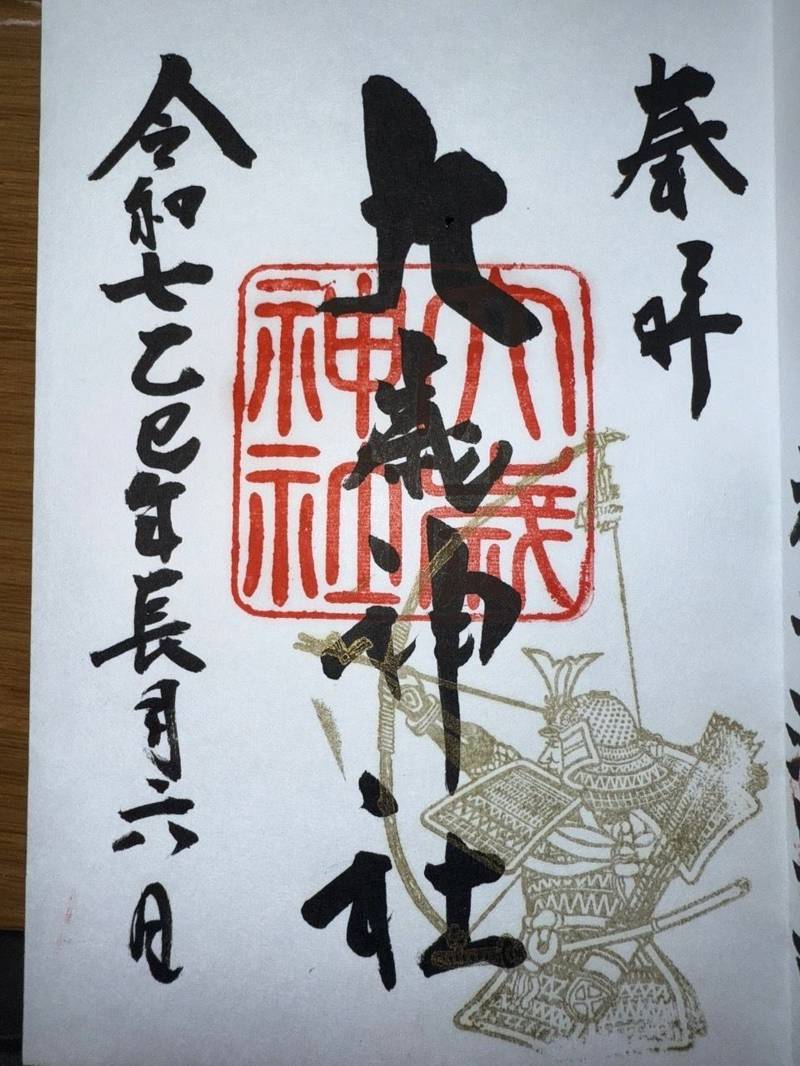 奉拝
大歳神社
令和七乙巳年長月六日
大歳
神社